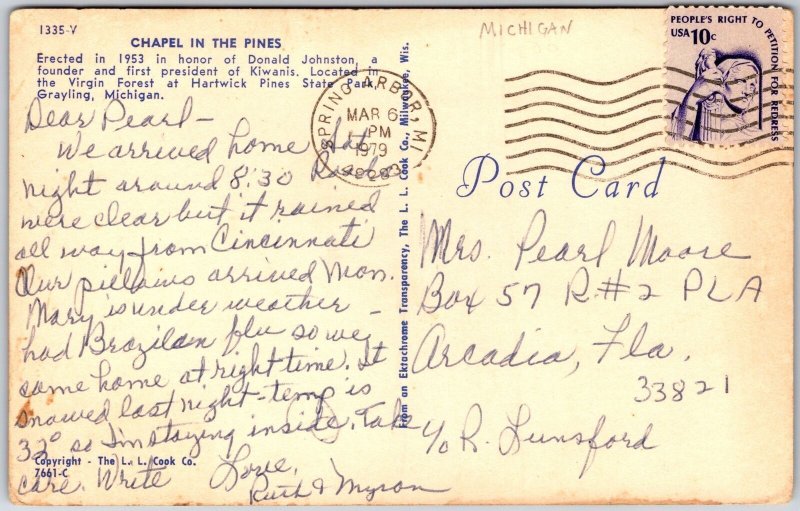 1335-V
CHAPEL IN THE PINES
Erected in 1953 in honor of Donald Johnston, a
founder and first president of Kiwanis. Located in
the Virgin Forest at Hartwick Pines State Park,
Grayling, Michigan.
Dear Pearl -
We arrived home Sat.
night around 8:30 Roads
were clear but it rained
all way from Cincinnati
Our pillows arrived Mon.
Mary is under weather -
had Brazilan flu so we
came home at right time. It
snowed last night - temp is
32° so I'm staying inside. Take
care. Write Love,
Ruth & Myron
Copyright - The L. L. Cook Co.
7661-C
From an Ektachrome Transparency, The L. L. Cook Co., Milwaukee, Wis.
MICHIGAN
SPRING ARBOR, MI
MAR 6
PM
1979
49283
PEOPLE'S RIGHT TO PETITION FOR REDRESS
USA 10c
Post Card
Mrs. Pearl Moore
Box 57 R.#2 PLA
Arcadia, Fla.
33821
c/o R. Lunsford